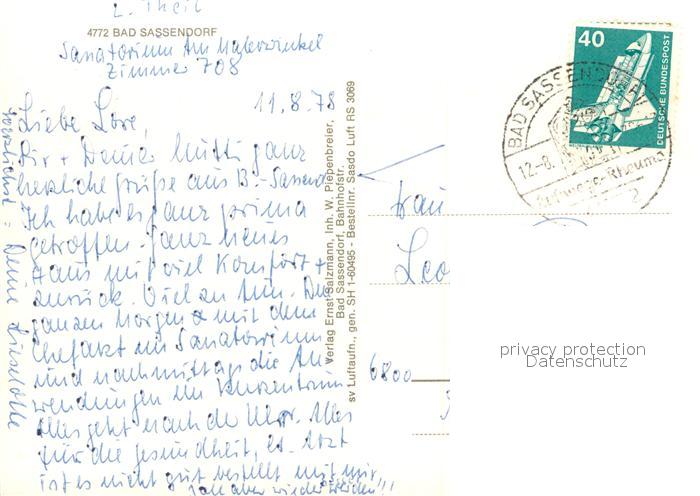 z. Theil
4772 BAD SASSENDORF
Sanatorium Am Malerwinkel
Zimmer 708
11.8.78
Liebe Lore,
Dir + Deiner Mutti ganz
herzliche Grüße aus B.-Sassend.
Ich habe es ganz prima
getroffen. Ganz neues
Haus mit viel Komfort +
zurück. Viel zu tun. Den
ganzen Morgen mit dem
Chefarzt im Sanatorium
und nachmittags die An-
wendungen im Kurzentrum
Alles geht nach der Uhr. Alles
für die Gesundheit, es
ist es nicht gut bestellt mit mir,
soll aber wieder werden!!!
Herzlichst = Deine Liselotte
Verlag Ernst Salzmann, Inh. W. Piepenbreier,
Bad Sassendorf, Bahnhofstr.
sv Luftaufn., gen. SH 1-60495 - Bestellnr. Sasdo Luft RS 3069
40
DEUTSCHE BUNDESPOST
BAD SASSENDORF
12.-8.
Rheuma
2
Frau
Leo
6800
privacy protection
Datenschutz